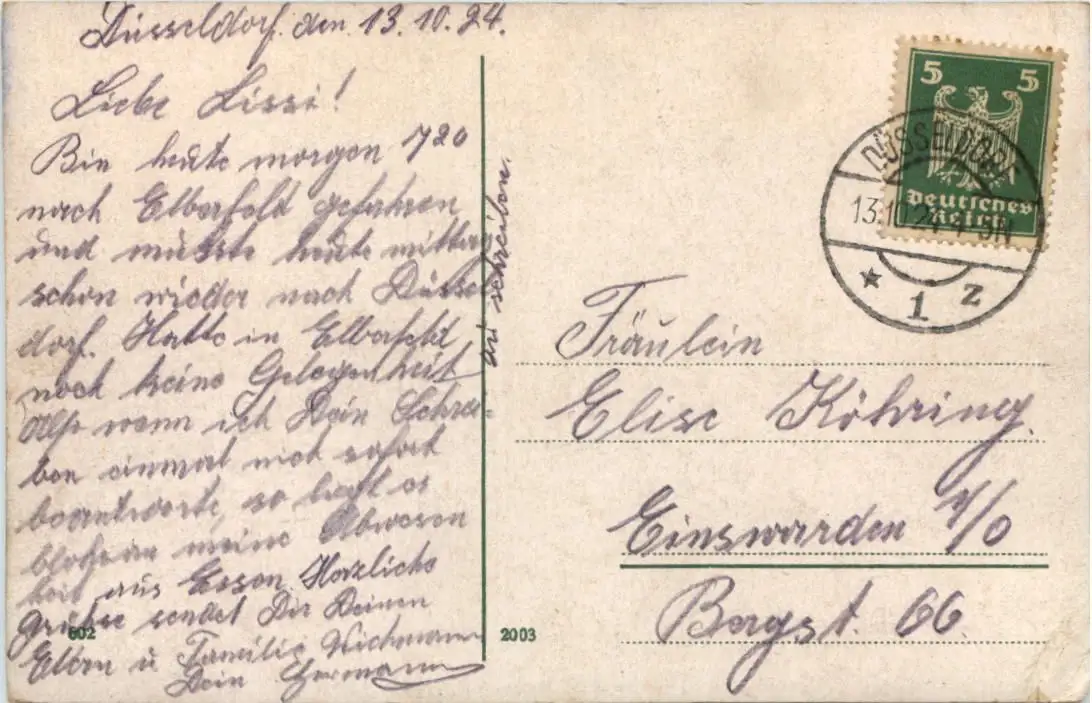 Düsseldorf. den 13.10.24.
Liebe Lissi!
Bin heute morgen 7 20
nach Elberfeld gefahren
und müsste heute mittag
schon wieder nach Düssel
dorf. Hatte in Elberfeld
noch keine Gelegenheit
zu schreiben.
Also wenn ich Dein Schrei-
ben einmal nicht sofort
beantworte, so liegt es
blos an meine Abwesen
heit aus Essen. Herzliche
Grüsse sendet Dir Deinen
Eltern u Familie Wichmann
Dein Hermann
602
2003
5 5
Deutsches
Reich
DÜSSELDORF
13.10.24 4-5N
* 1 z
Fräulein
Elise Köhring.
Einswarden i/O
Bergst. 66.